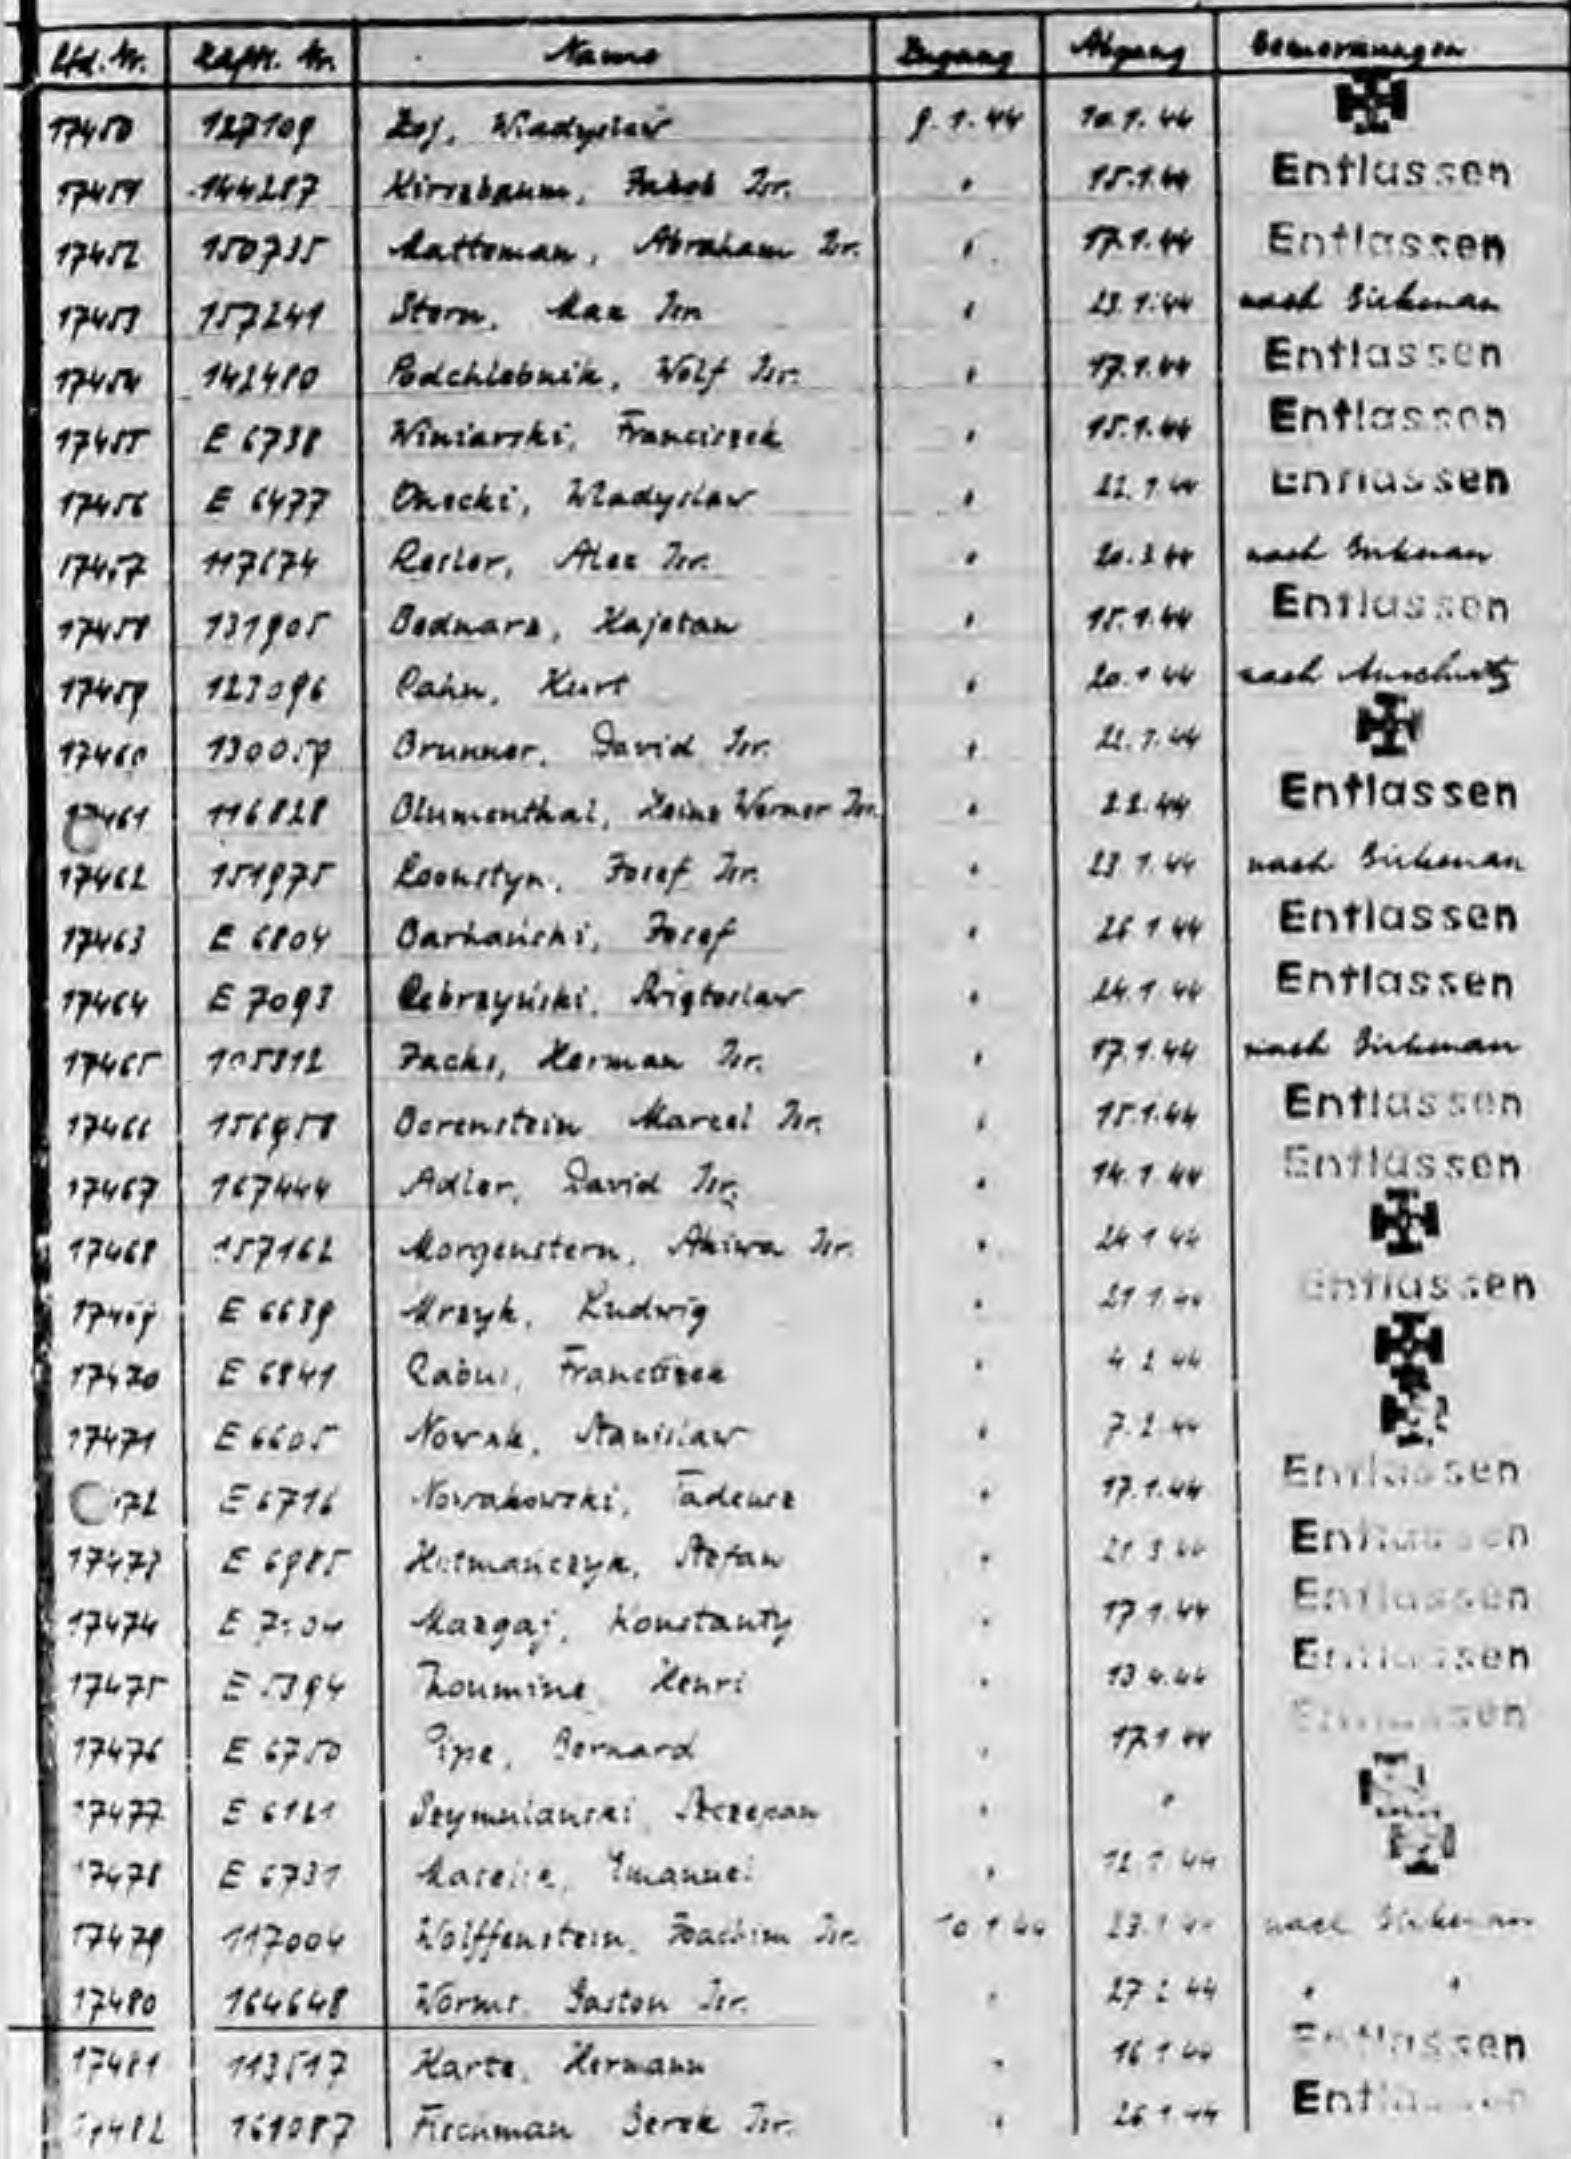 Lfd. Nr. Häftl. Nr. Name Zugang Abgang Bemerkungen
17450 127109 Zoj, Wladyslaw 9.1.44 10.1.44
17451 144287 Hirszbaum, Jakob Isr. " 15.1.44 Entlassen
17452 150735 Mattoman, Abraham Isr. " 17.1.44 Entlassen
17453 157241 Stern, Max Isr. " 23.1.44 nach Birkenau
17454 142480 Podchlebnik, Wolf Isr. " 17.1.44 Entlassen
17455 E 6738 Winiarski, Franciszek " 15.1.44 Entlassen
17456 E 6477 Wladyslaw " 22.1.44 Entlassen
17457 117674 Resler, Alex Isr. " 20.3.44 nach Birkenau
17458 131905 Bednarz, Kajetan " 15.1.44 Entlassen
17459 123096 Kurt " 20.1.44 nach Auschwitz
17460 130059 Brunner, David Isr. " 22.1.44
17461 116828 Blumenthal, Heinz Werner Isr. " 2.2.44 Entlassen
17462 151975 Josef Isr. " 23.1.44 nach Birkenau
17463 E 6804 Barhański, Josef " 26.1.44 Entlassen
17464 E 7093 Cebrzyński, Swigtoslaw " 24.1.44 Entlassen
17465 105312 Fachs, Herman Isr. " 17.1.44 nach Birkenau
17466 156958 Borenstein Marcel Isr. " 15.1.44 Entlassen
17467 167444 Adler, David Isr. " 14.1.44 Entlassen
17468 157162 Morgenstern, Akiwa Isr. " 24.1.44
17469 E 6639 Mrzyk, Ludwig " 21.1.44 Entlassen
17470 E 6841 Franciszek " 4.2.44
17471 E 6605 Nowak, Stanislaw " 7.2.44
E 6716 Nowakowski, Tadeusz " 17.1.44 Entlassen
17473 E 6985 Stefan " 21.3.44 Entlassen
17474 Mazgaj, Konstanty " 17.1.44 Entlassen
17475 E 5394 Thoumine Henri " 13.4.44 Entlassen
17476 E 6750 Pipe, Bernard " 17.1.44 Entlassen
17477 E 6121 Szczepan " "
17478 E 6731 Emanuel " 12.1.44
17479 117004 Wolffenstein, Joachim Isr. 10.1.44 23.1.44 nach Birkenau
17480 164648 Worms, Gaston Isr. " 27.2.44 " "
17481 113517 Harte, Hermann " 16.1.44 Entlassen
17482 161087 Fischman Berek Isr. " 26.1.44 Entlassen